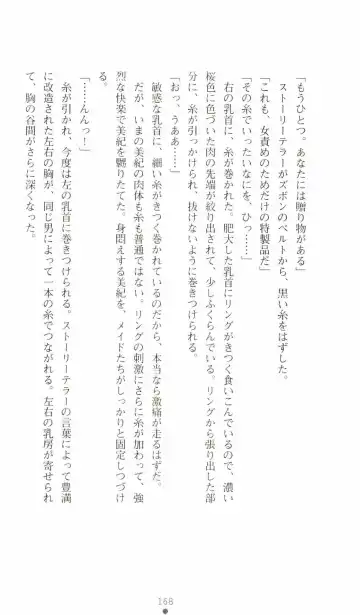 「もうひとつ。あなたには贈り物がある」
　ストーリーテラーがズボンのベルトから、黒い糸をはずした。
「これも、女責めのためだけの特製品だ」
「その糸でいったいなにを、ひっ……」
　右の乳首に、糸が巻かれた。肥大した乳首にリングがきつく食いこんでいるので、濃い
桜色に色づいた肉の先端が絞り出されて、少しふくらんでいる。リングから張り出した部
分に、糸が引っかけられ、抜けないように巻きつけられる。
「おっ、うああ……」
　敏感な乳首に、細い糸がきつく巻かれているのだから、本当なら激痛が走るはずだ。
　だが、いまの美紀の肉体も糸も普通ではない。リングの刺激にさらに糸が加わって、強
烈な快楽で美紀を嬲りたてた。身悶えする美紀を、メイドたちがしっかりと固定しつづけ
る。
「……んんっ！」
　糸が引かれ、今度は左の乳首に巻きつけられる。ストーリーテラーの言葉によって豊満
に改造された左右の胸が、同じ男によって一本の糸でつながれる。左右の乳房が寄せられ
て、胸の谷間がさらに深くなった。
168